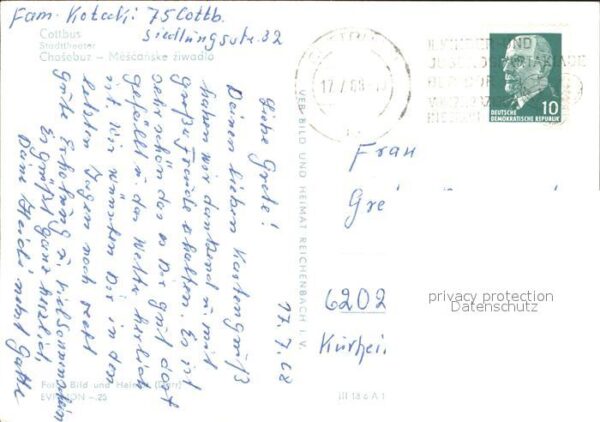 Fam. Kotecki 75 Cottb.
Siedlungsstr. 32
Cottbus
Stadttheater
Chośebuz - Měsćańske źiwadło
Liebe Grete!
Deinen lieben Kartengruß
haben wir dankend u. mit
große Freude erhalten. Es ist
sehr schön das es Dir gut dort
gefällt u. das Wetter herrlich
ist. Wir wünschen Dir in den
letzten Tagen noch recht
gute Erholung u. viel Sonnenschein
Es grüßt ganz herzlich
Deine Heidi nebst Gatte
17.7.68
Foto: Bild und Heimat (Darr)
EVP MDN -.25
VEB BILD UND HEIMAT REICHENBACH I. V.
III 18 6 A 1
17.7.68
KINDER- UND
JUGENDSPARTAKIADE
DER DDR
10
DEUTSCHE
DEMOKRATISCHE REPUBLIK
Frau
Gre
6202
Kurhei
privacy protection
Datenschutz